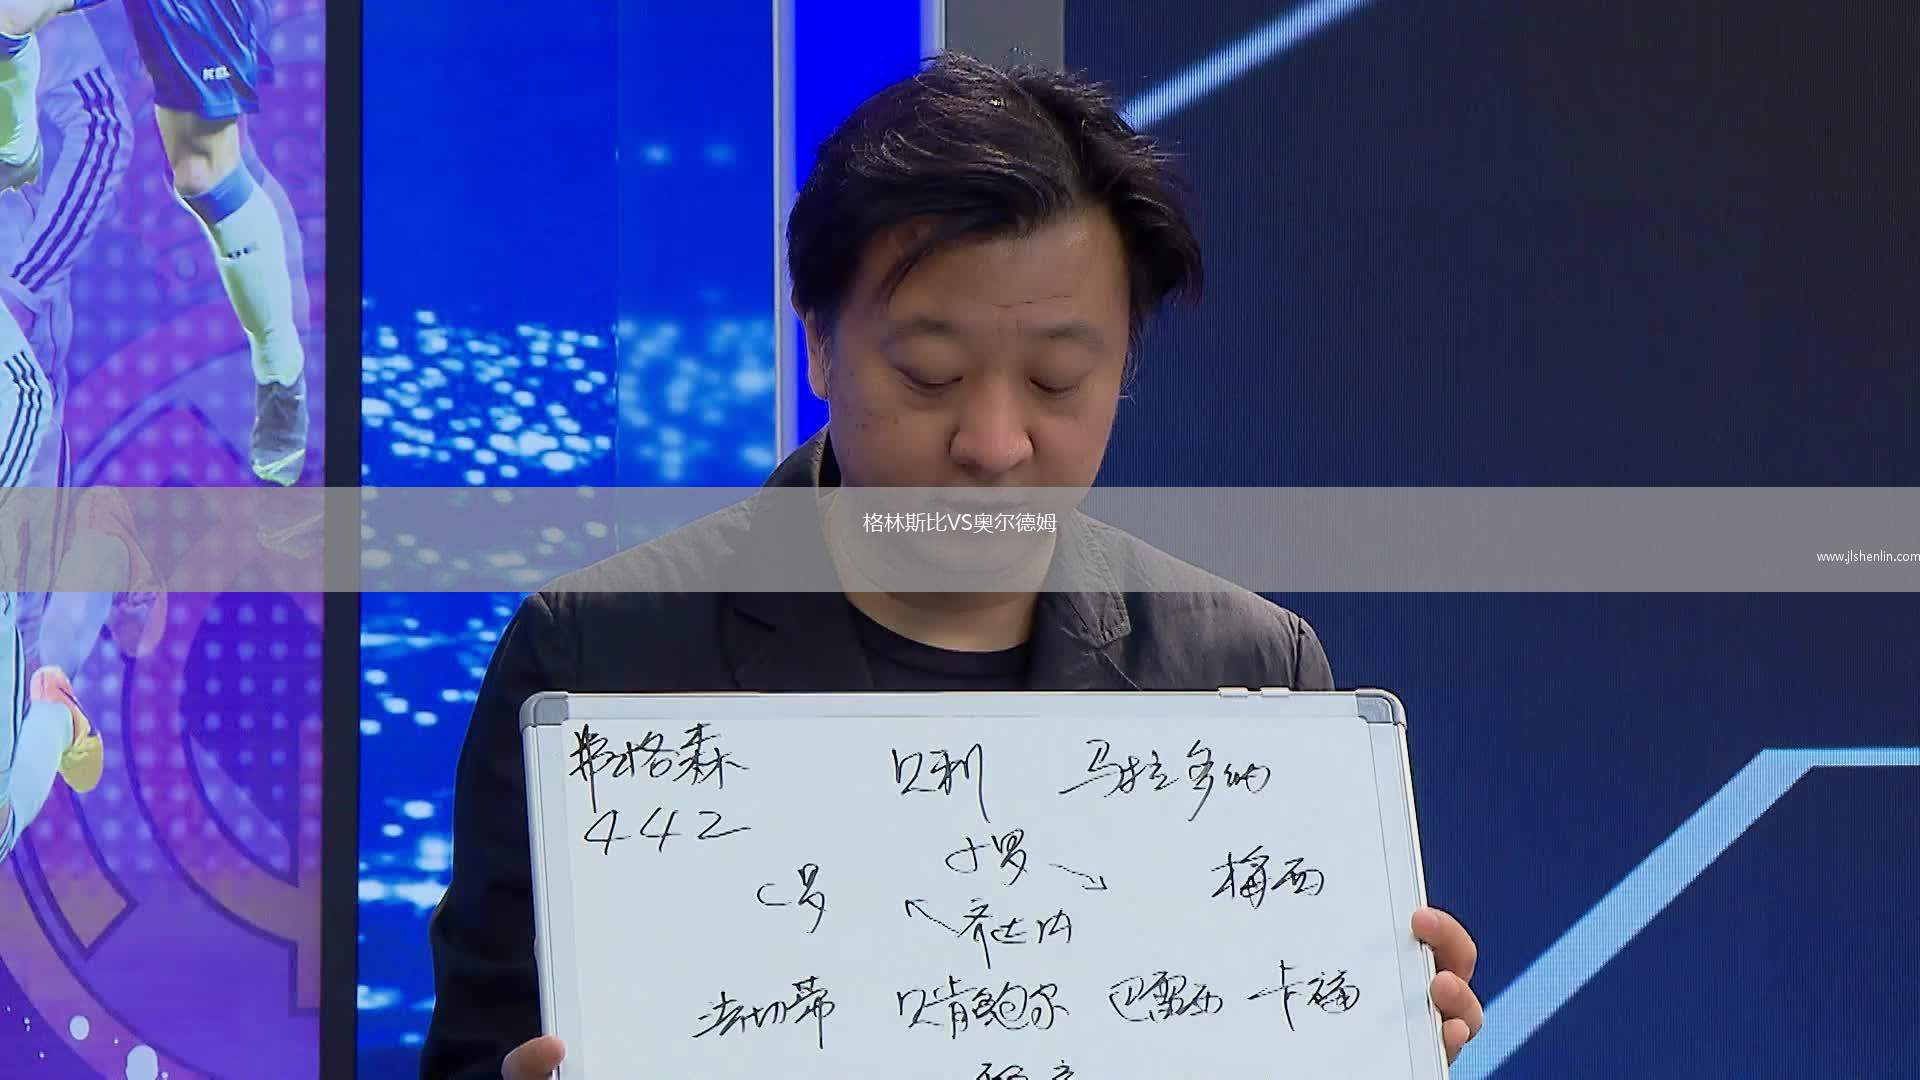 KEL
格林斯比VS奥尔德姆
www.jlshenlin.com
弗格森 贝利 马拉多纳
442
小罗
C罗 梅西
齐达内
法切蒂 贝肯鲍尔 巴雷西 卡福